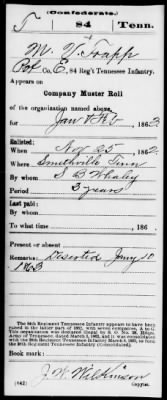 (Confederate.)
T 84 Tenn.
M. Y. Trapp
Pvt Co. E, 84 Reg't Tennessee Infantry.
Appears on
Company Muster Roll
of the organization named above,
for Jan & Feb, 1863.
Enlisted:
When Nov 25, 1862.
Where Smithville Tenn
By whom S B Whaley
Period 3 years
Last paid:
By whom
To what time , 186 .
Present or absent
Remarks: Deserted Jany 10
1863
Book mark:
(642) J. W. Wilkinson
Copyist.